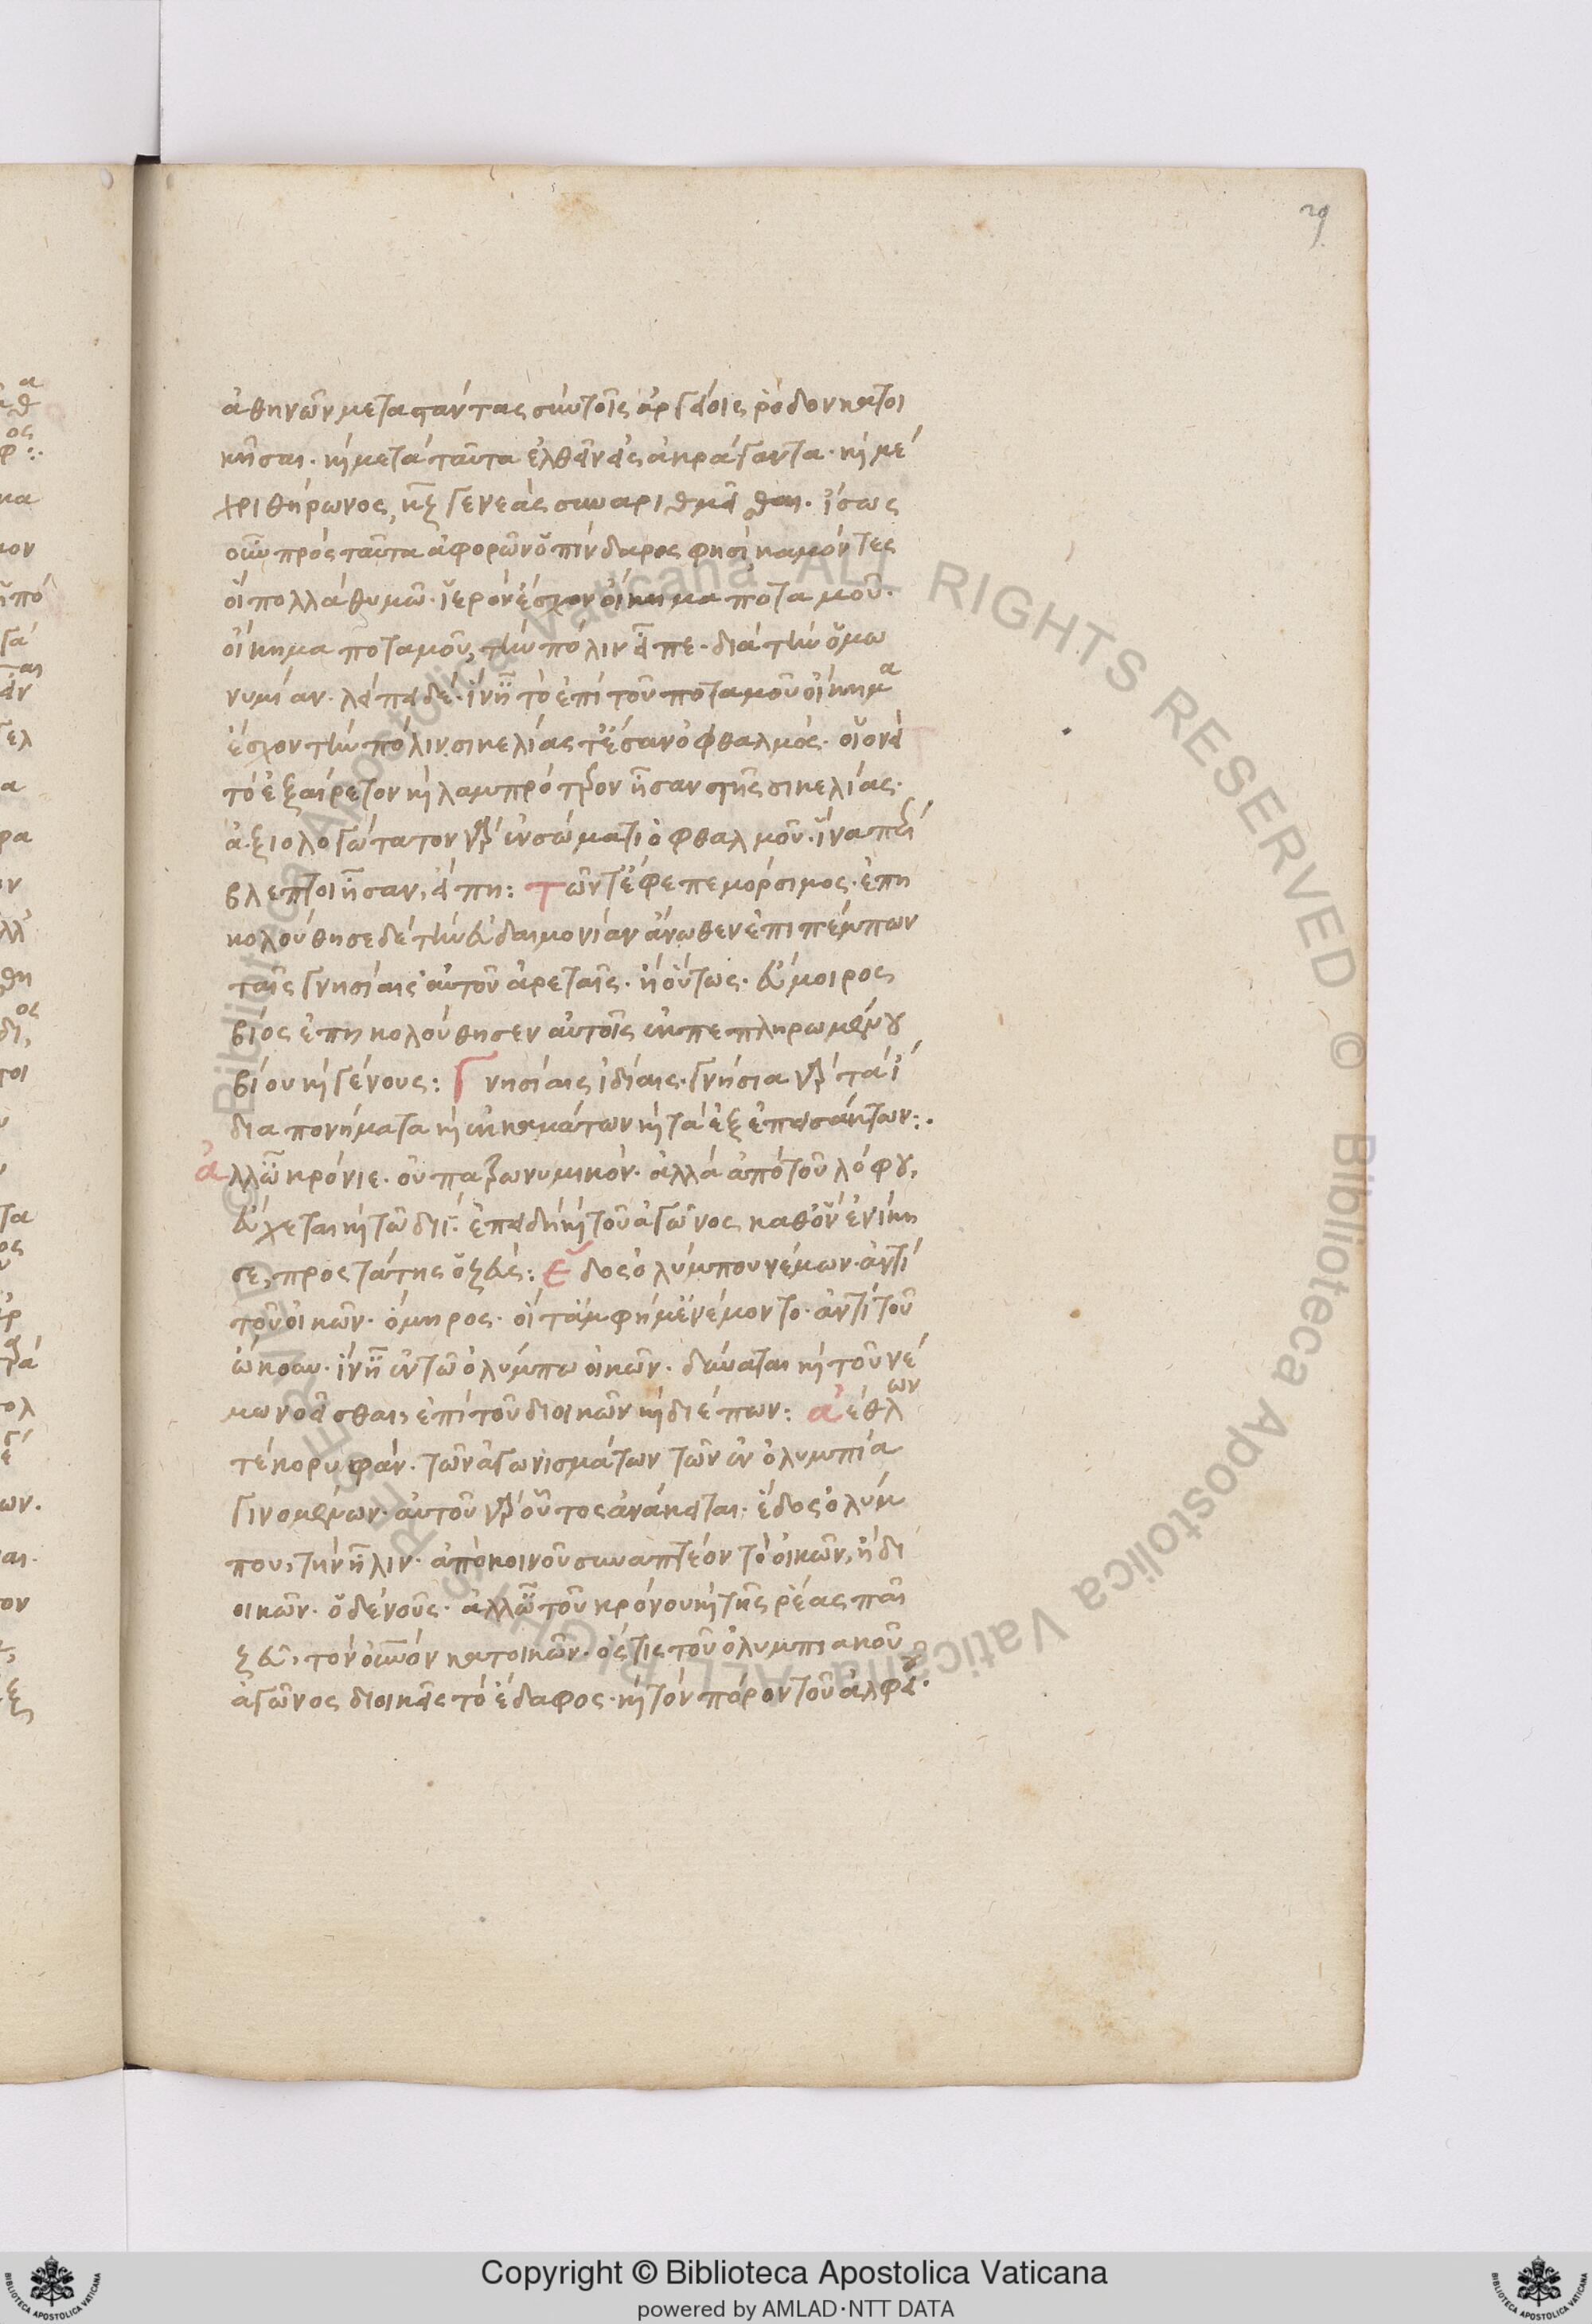 29
ἀθηνῶν μεταστάντας σὺν τοῖς ἀργείοις ῥόδον κατοι
κῆσαι. κὴ μετὰ ταῦτα ἐλθεῖν εἰς ἀκράγαντα. κὴ μέ
χρι θήρωνος, κζ γενεὰς συναριθμεῖσθαι. ἴσως
οὖν πρὸς ταῦτα ἀφορῶν ὁ πίνδαρος φησὶ καμόντες
οἳ πολλὰ θυμῶ. ἱερὸν ἔσχον οἴκημα ποταμοῦ.
οἴκημα ποταμοῦ, τὴν πόλιν εἶπε. διὰ τὴν ὁμω
νυμίαν. λείπει δέ. ἵν ἦ τὸ ἐπὶ τοῦ ποταμοῦ οἴκημα
ἔσχον τὴν πόλιν σικελίας τ' ἔσαν ὀφθαλμός. οἱονεὶ
τὸ ἐξαίρετον κὴ λαμπρότερον ἦσαν τῆς σικελίας.
ἀξιολογώτατον γὰρ ἐν σώματι ὀφθαλμοῦ. ἵνα περί
βλεπτοι ἦσαν, εἴπη: τῶν τ' ἔφεπε μόρσιμος. ἐπη
κολούθησε δὲ τὴν εὐδαιμονίαν ἄνωθεν ἐπιπέμπων
ταῖς γνησίαις αὐτοῦ ἀρεταῖς. ἢ οὕτως. εὔμοιρος
βίος ἐπηκολούθησεν αὐτοῖς ἐκπεπληρωμένου
βίου κὴ γένους: Γνησίαις ἰδίαις. γνήσια γὰρ τὰ ἴ
δια πονήματα κὴ ἐκ καμάτων κὴ τὰ ἐξ ἐπεισάκτων:.
ἀλλ' ὦ κρόνιε. οὐ πατρωνυμικόν. ἀλλὰ ἀπὸ τοῦ λόφου,
εὔχεται κὴ τῶ διΐ. ἐπειδὴ κὴ τοῦ ἀγῶνος καθ' ὃν ἐνίκη
σε, προστάτης ὁ ζεύς: Ἕδος ὀλύμπου νέμων. ἀντὶ
τοῦ οἰκῶν. ὅμηρος. οἵ τ' ἀμφ' ἡμὲ νέμοντο. ἀντὶ τοῦ
ὤκουν. ἵν ἦ ἐν τῶ ὀλύμπω οἰκῶν. δύναται κὴ τοῦ νέ
μων θεῖσθαι, ἐπὶ τοῦ διοικῶν κὴ διέπων: ἀέθλων
τε κορυφάν. τῶν ἀγωνισμάτων τῶν ἐν ὀλυμπία
γινομένων. αὐτοῦ γὰρ οὗτος ἀνάκειται. ἕδος ὀλύμ
που, τὴν ἦλιν. ἀπὸ κοινοῦ συναπτέον τὸ οἰκῶν, ἢ δι
οικῶν. ὁ δὲ νοῦς. ἀλλ' ὦ τοῦ κρόνου κὴ τῆς ῥέας παῖ
ζεῦ, τὸν οὐρανὸν κατοικῶν. ὅστις τοῦ ὀλυμπιακοῦ
ἀγῶνος διοικεῖς τὸ ἔδαφος. κὴ τὸν πόρον τοῦ ἀλφειοῦ.
Copyright © Biblioteca Apostolica Vaticana
powered by AMLAD·NTT DATA